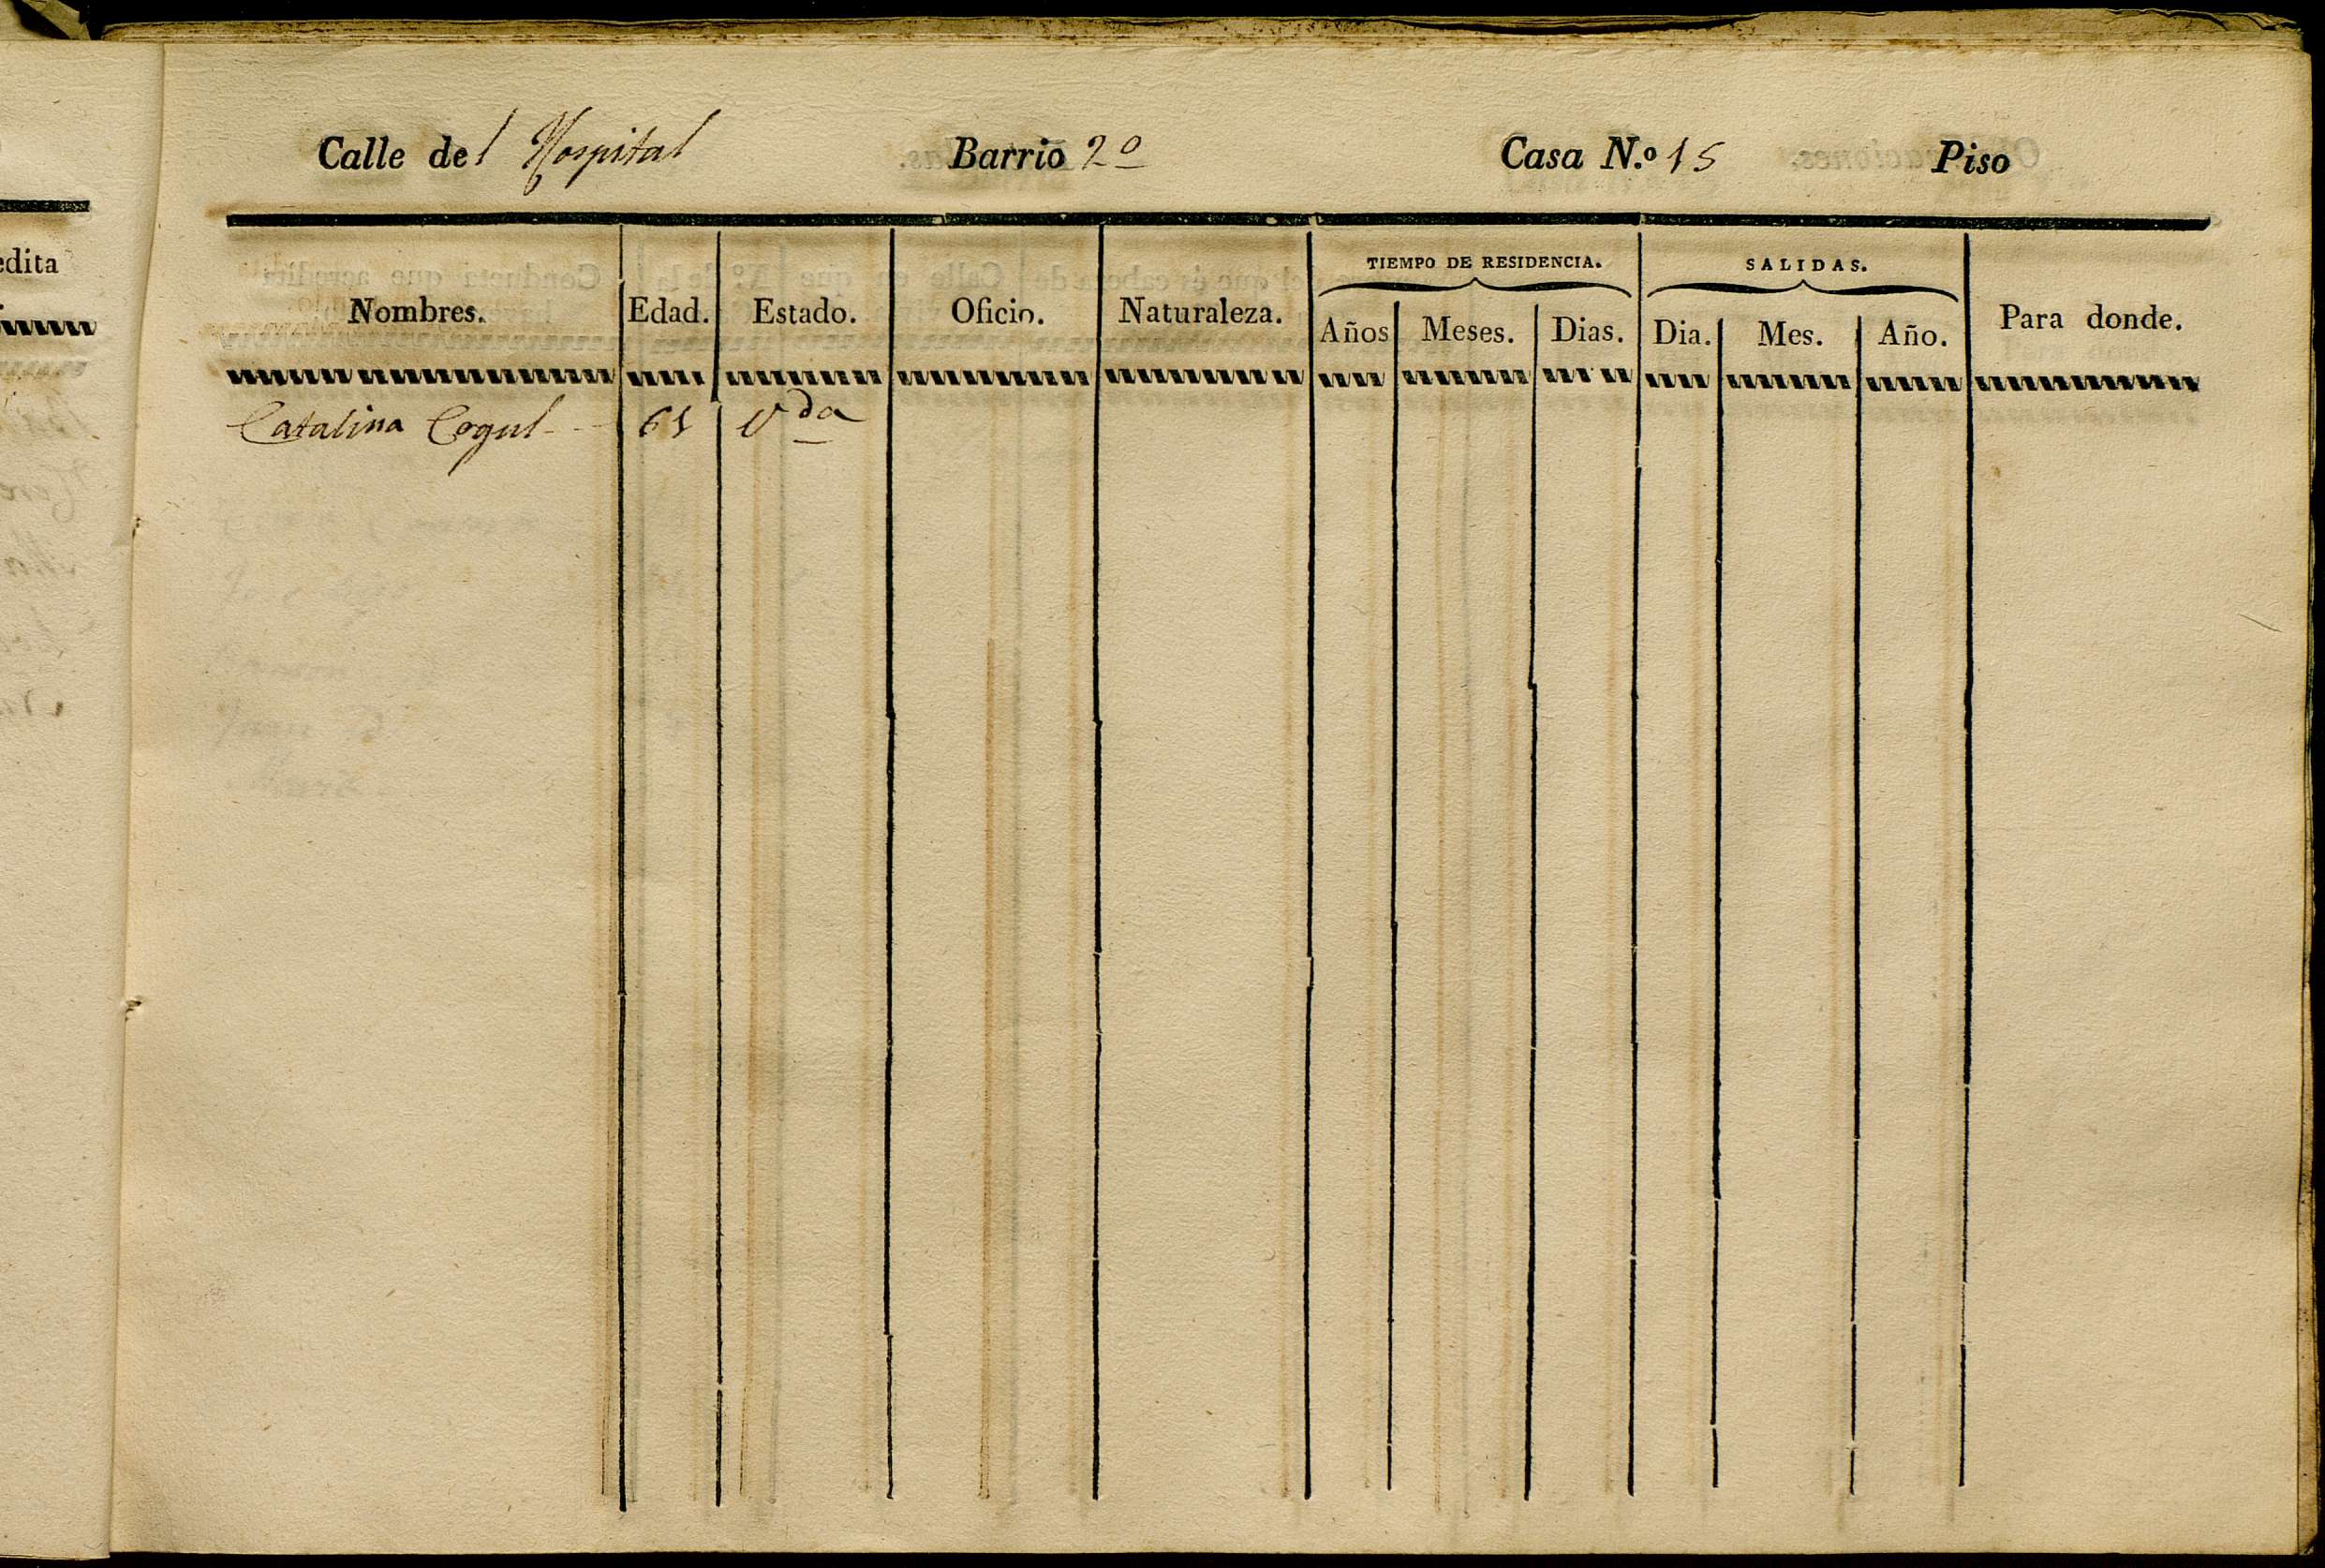 edita
Calle del Hospital Barrio 2º Casa N.º 15 Piso
TIEMPO DE RESIDENCIA. SALIDAS.
Nombres. Edad. Estado. Oficio. Naturaleza. Años Meses. Dias. Dia. Mes. Año. Para donde.
Catalina Cogul 61 Vda